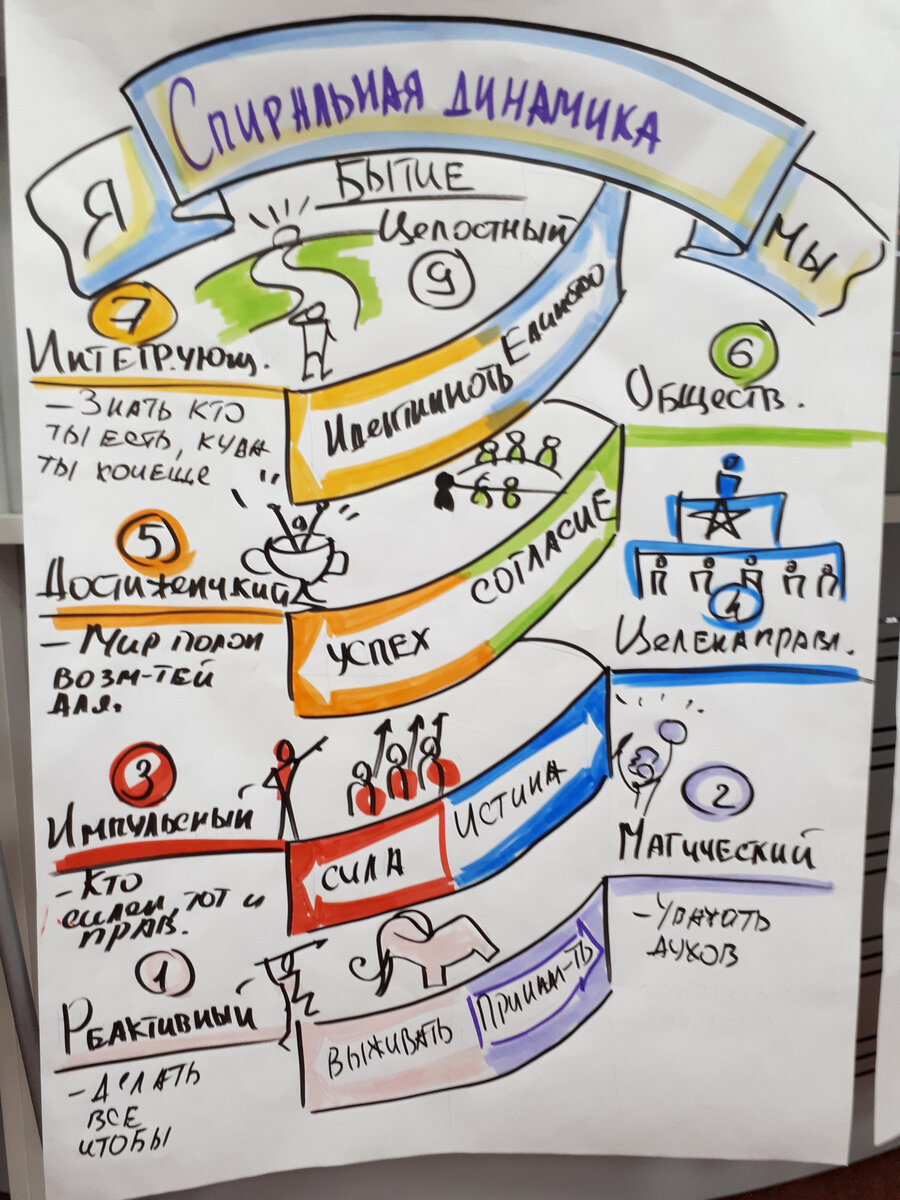 Спиральная динамика
Я
Мы
Бытие
Целостный
9
7
Интегрующ.
– Знать кто
ты есть, куда
ты хочеше
Идентинноть
Единство
6
Обществ.
5
Достиженчкий
– Мир полон
возм-тей
для.
Успех
Согласие
4
Целенаправл.
3
Импульсный
– Кто
силен, тот и
прав.
Сила
Истина
2
Магический
– Уважать
духов
1
Реактивный
– Делать
все
чтобы
Выживать